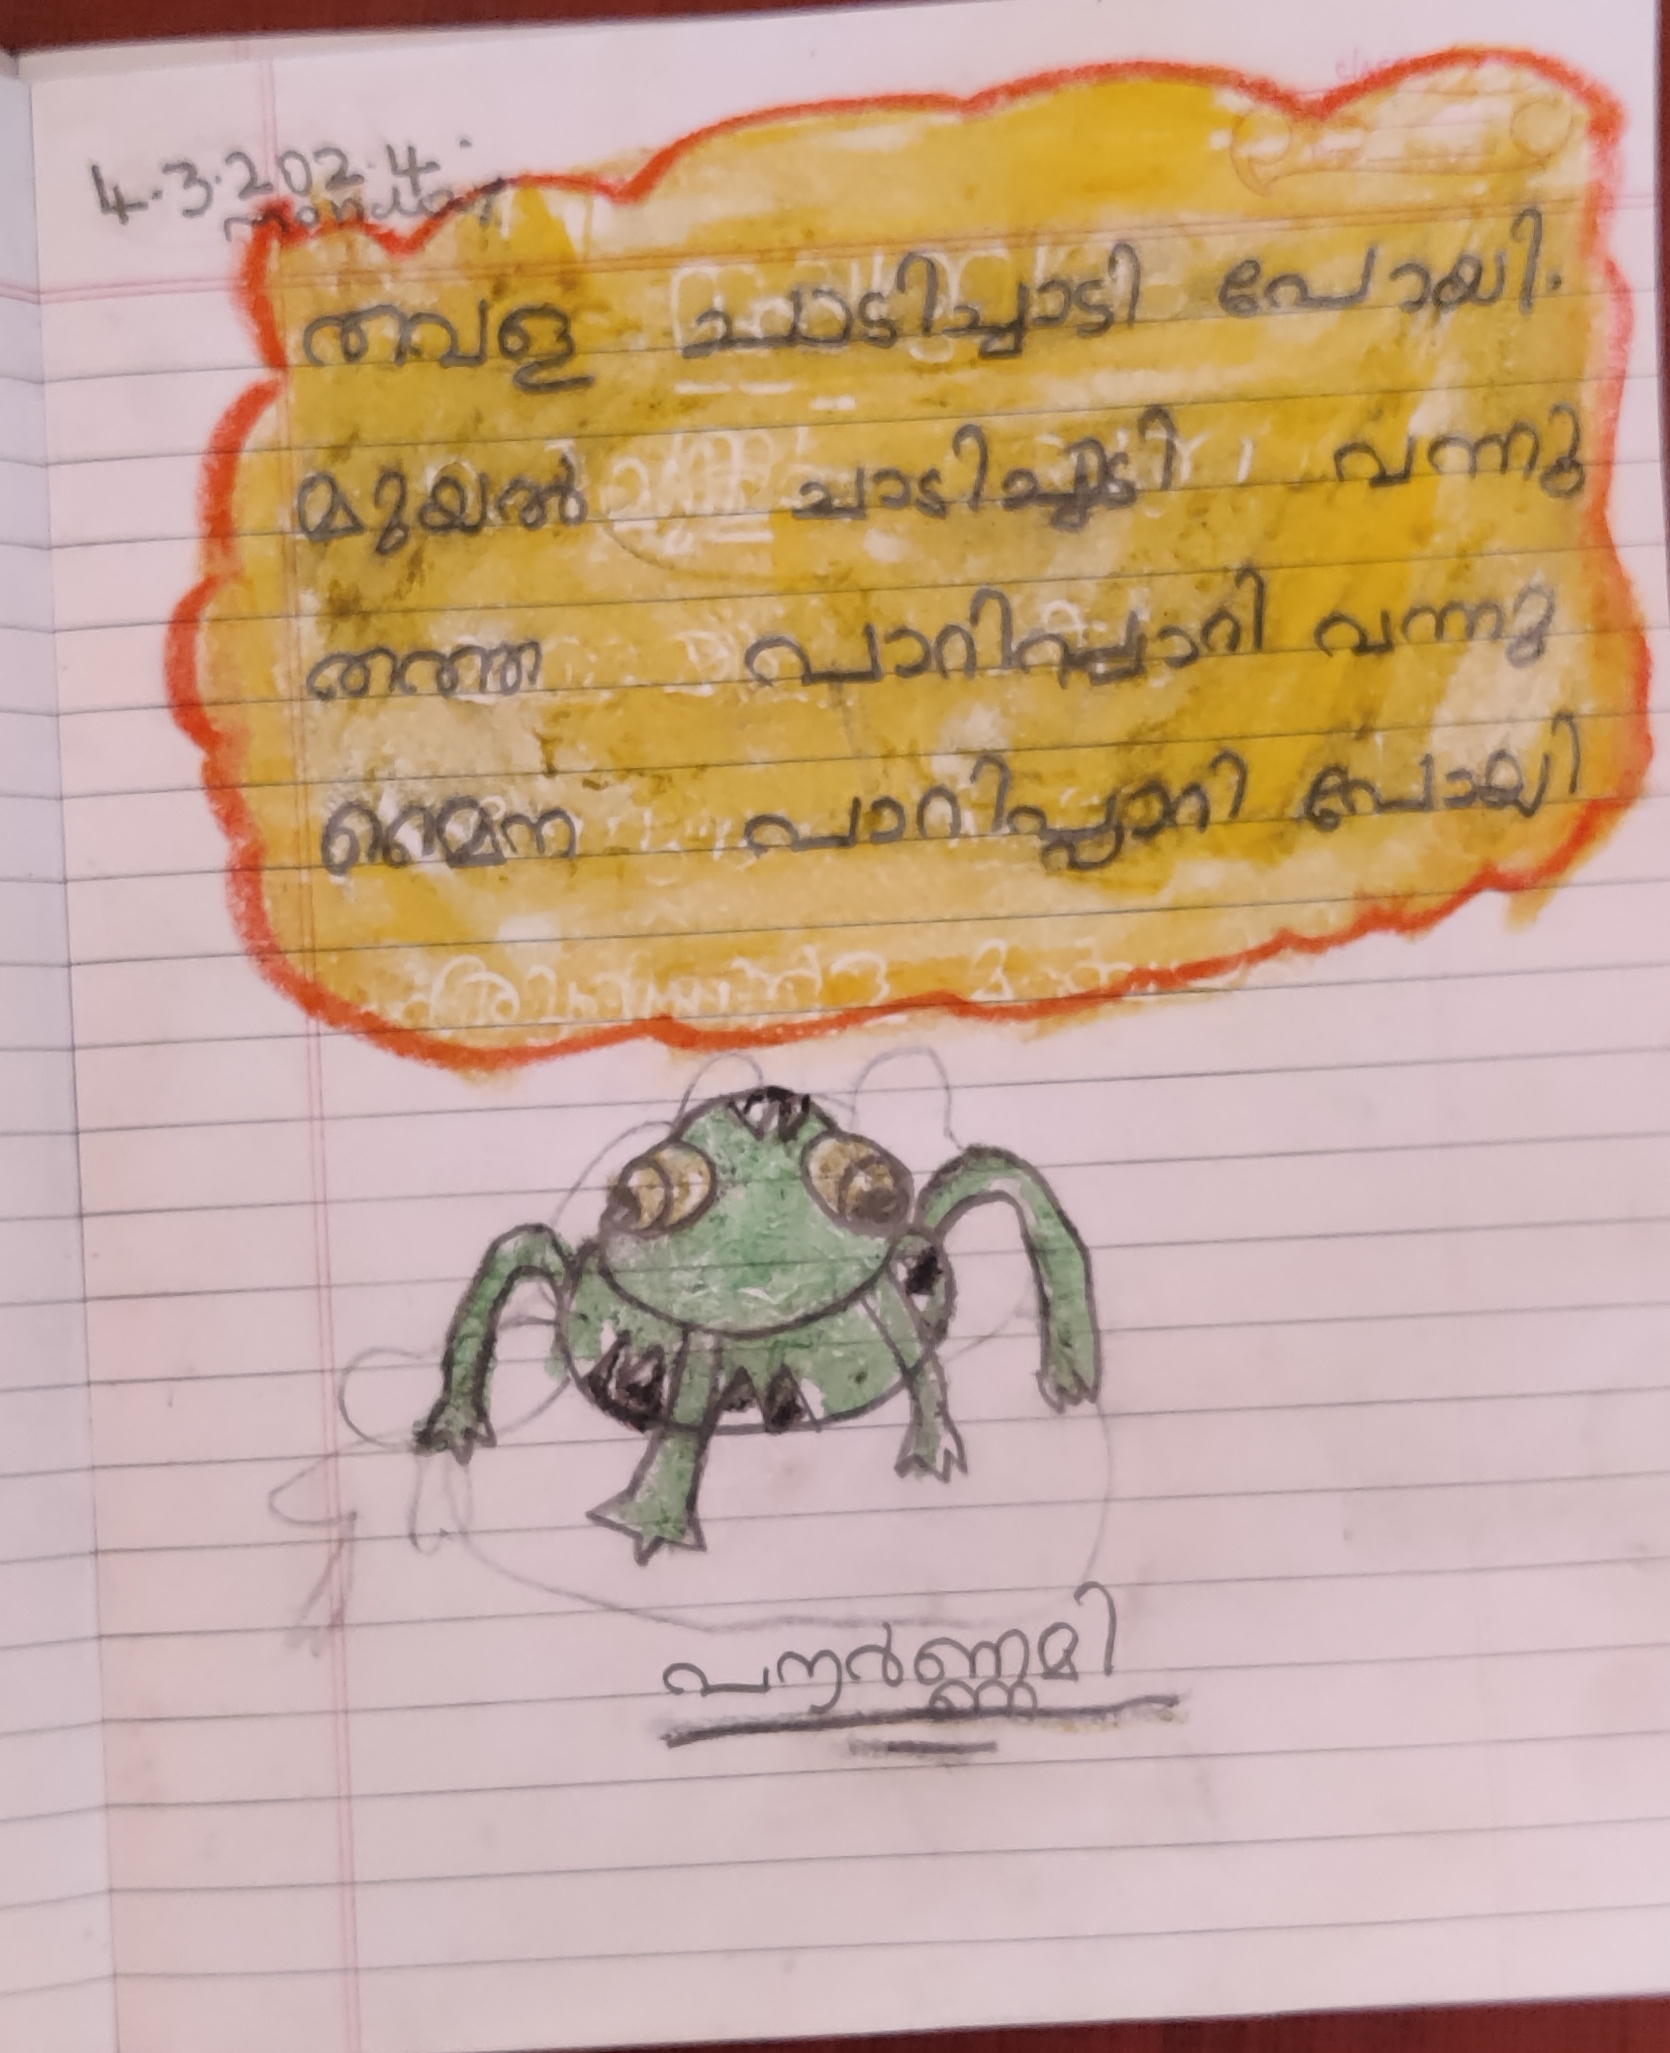 4.3.2024.
monday
തവള ചാടിച്ചാടി പോയി.
മുയൽ ചാടിച്ചാടി വന്നു
തത്ത പാറിപ്പാറി വന്നു
മൈന പാറിപ്പാറി പോയി